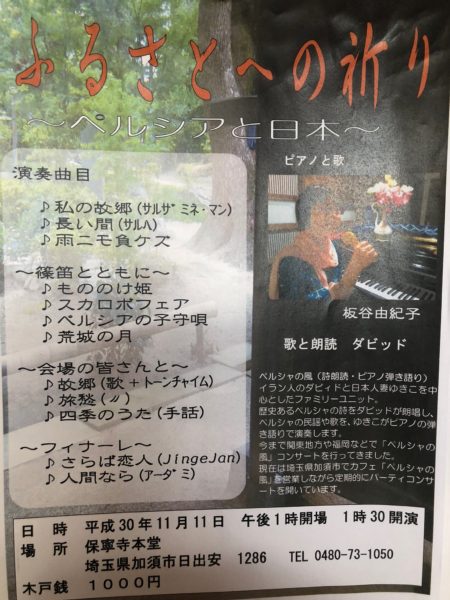 ふるさとへの祈り
～ペルシアと日本～
演奏曲目
♪私の故郷(ｻﾙｻﾞﾐﾈ・ﾏﾝ)
♪長い間(ｻﾙﾊ)
♪雨ニモ負ケズ
～篠笛とともに～
♪もののけ姫
♪スカロボフェア
♪ペルシアの子守唄
♪荒城の月
～会場の皆さんと～
♪故郷(歌+トーンチャイム)
♪旅愁(〃)
♪四季のうた(手話)
～フィナーレ～
♪さらば恋人(JingeJan)
♪人間なら(ｱｰﾀﾞﾐ)
ピアノと歌
板谷由紀子
歌と朗読 ダビッド
ペルシャの風(詩朗読・ピアノ弾き語り)
イラン人のダビィドと日本人妻ゆきこを中
心としたファミリーユニット。
歴史あるペルシャの詩をダビッドが朗唱し、
ペルシャの民謡や歌を、ゆきこがピアノの弾
き語りで演奏します。
今まで関東地方や福岡などで「ペルシャの
風」コンサートを行ってきました。
現在は埼玉県加須市でカフェ「ペルシャの
風」を営業しながら定期的にパーティコンサ
ートを開いています。
日 時 平成30年11月11日 午後1時開場 1時30開演
場 所 保寧寺本堂
埼玉県加須市日出安 1286 TEL 0480-73-1050
木戸銭 1000円